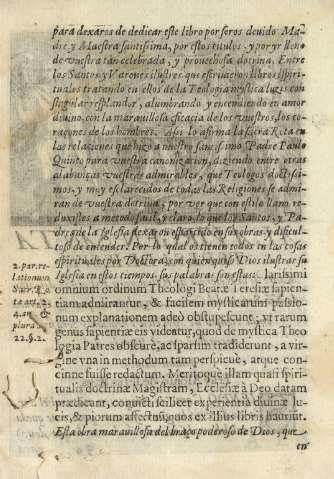 para dexaros de dedicar este libro por seros deuido Ma-
dre, y Maestra santissima, por estos titulos, y por yr lleno
de vuestra tan celebrada, y prouechosa dotrina. Entre
los Santos, y Varones ilustres que escriuieron libros ispiri-
tuales tratando en ellos de la Teologia mystica luzis con
singular resplandor, alumbrando, y encendiendo en amor
diuino con la marauillosa eficacia de los vuestros, los co-
raçones de los hombres. Assi lo afirma la sacra Rota en
las relaciones que hizo a nuestro santissimo Padre Paulo
Quinto para vuestra canonizacion, diziendo entre otras
alabanças vuestras admirables, que Teologos doctissi-
mos, y muy esclarecidos de todas las Religiones se admi-
ran de vuestra dotrina, por ver que con estilo llano re-
duxistes a metodo facil, y claro, lo que los Santos, y Pa-
dres de la Iglesia dexaron esparcido en sus obras, y dificul-
toso de entender. Por lo qual os tienen todos en las cosas
espirituales por Doctora, con quien quiso Dios ilustrar su
Iglesia en estos tiempos. sus palabras son estas. Clarissimi
omnium ordinum Theologi Beatæ Teresiæ sapien-
tiam admirantur, & facilem mysticarum passio-
num explanationem adeo obstupescunt, vt rarum
genus sapientiæ eis videntur, quod de mystica Theo
logia Patres obscure, ac sparsim tradiderunt, a vir-
gine vna in methodum tam perspicue, atque con-
cinne fuisse redactum. Meritoque illam quasi spiri-
tualis doctrinæ Magistram, Ecclesiæ à Deo datam
prædicant, conuicti scilicet experientia diuinæ lu-
cis, & piorum affectuũ, quos ex illius libris hauriũt.
Esta obra marauillosa del braço poderoso de Dios, que
en
2. par. re-
lationum
4. ar. &
plura
22. §. 2.